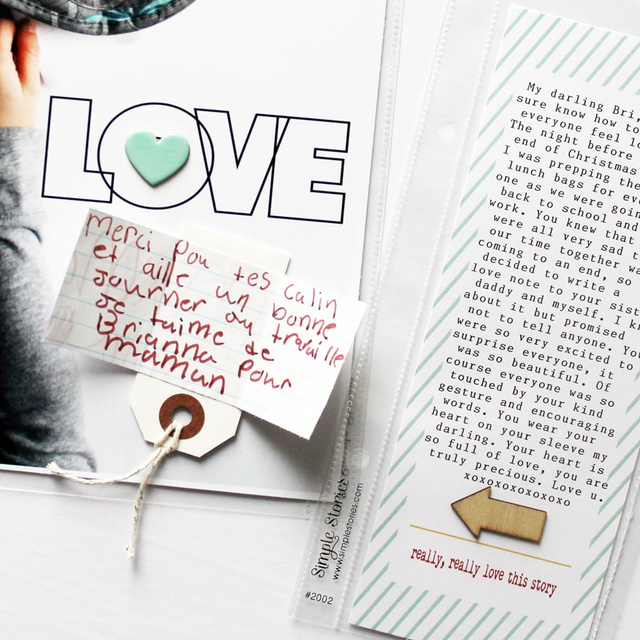 LOVE
Merci pou tes calin
et aille un bonne
journer ou travaille
Je taime de
Brianna pour
maman
simple stories
www.simplestories.com
#2002
My darling Bri,
sure know how to
everyone feel lo
The night before
end of Christmas
I was prepping the
lunch bags for eve
one as we were goin
back to school and
work. You knew that
were all very sad t
our time together w
coming to an end, so
decided to write a
love note to your sist
daddy and myself. I k
about it but promised
not to tell anyone. You
were so very excited to
surprise everyone, it
was so beautiful. Of
course everyone was so
touched by your kind
gesture and encouraging
words. You wear your
heart on your sleeve my
darling. Your heart is
so full of love, you are
truly precious. Love u.
xoxoxoxoxoxoxo
really, really love this story